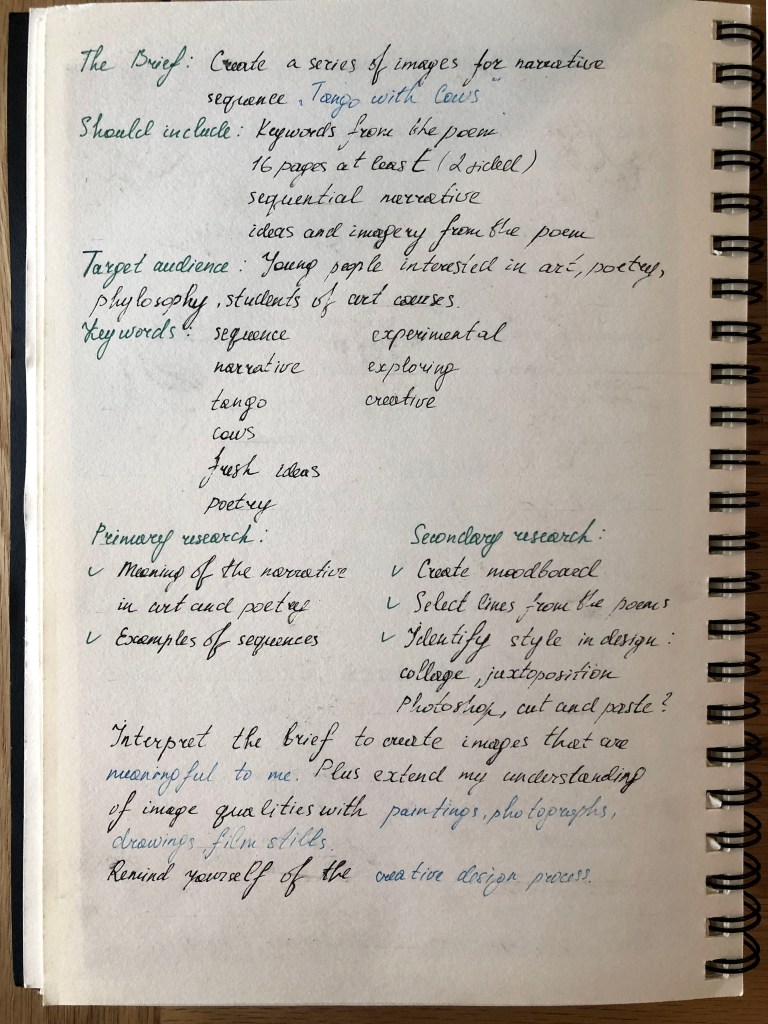 The Brief: Create a series of images for narrative
sequence „Tango with Cows"
Should include: Keywords from the poem
16 pages at least (2 sided)
sequential narrative
ideas and imagery from the poem
Target audience: Young people interested in art, poetry,
phylosophy, students of art courses.
Keywords: sequence experimental
narrative exploring
tango creative
cows
fresh ideas
poetry
Primary research:
✓ Meaning of the narrative
in art and poetry
✓ Examples of sequences
Secondary research:
✓ Create moodboard
✓ Select lines from the poems
✓ Identify style in design:
collage, juxtoposition
Photoshop, cut and paste?
Interpret the brief to create images that are
meaningful to me. Plus extend my understanding
of image qualities with paintings, photographs,
drawings, film stills.
Remind yourself of the creative design process.